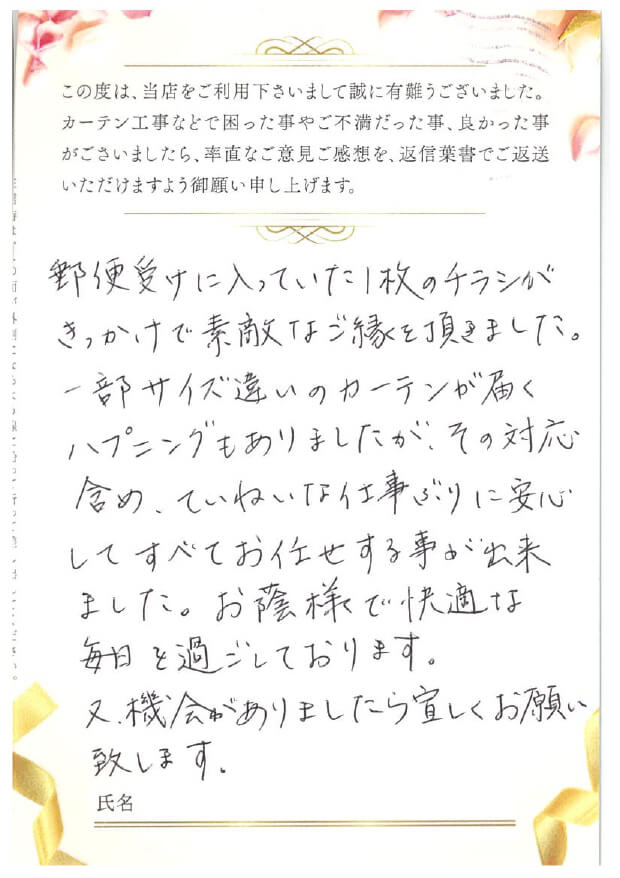 この度は、当店をご利用下さいまして誠に有難うございました。
カーテン工事などで困った事やご不満だった事、良かった事
がございましたら、率直なご意見ご感想を、返信葉書でご返送
いただけますよう御願い申し上げます。
郵便受けに入っていた1枚のチラシが
きっかけで素敵なご縁を頂きました。
一部サイズ違いのカーテンが届く
ハプニングもありましたが、その対応
含め、ていねいな仕事ぶりに安心
してすべてお任せする事が出来
ました。お蔭様で快適な
毎日を過ごしております。
又、機会がありましたら宜しくお願い
致します。
氏名